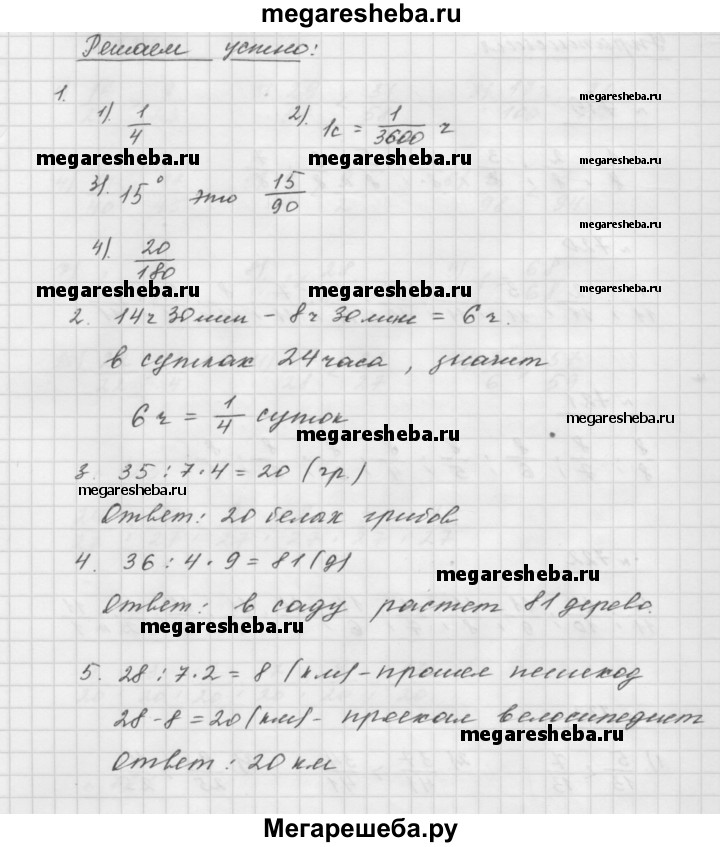 megaresheba.ru
Решаем устно:
1.
1). 1/4 2). 1с = 1/3600 ч
megaresheba.ru
megaresheba.ru megaresheba.ru megaresheba.ru
3). 15° это 15/90
megaresheba.ru
4). 20/180
megaresheba.ru
megaresheba.ru megaresheba.ru megaresheba.ru
2. 14ч 30мин - 8ч 30мин = 6ч.
в сутках 24 часа, значит
6ч = 1/4 суток
megaresheba.ru megaresheba.ru
3. 35 : 7 · 4 = 20 (гр.)
megaresheba.ru
Ответ: 20 белах грибов
4. 36 : 4 · 9 = 81 (д)
megaresheba.ru
Ответ: в саду растет 81 дерево.
megaresheba.ru megaresheba.ru
5. 28 : 7 · 2 = 8 (км) - прошел пешеход
28 - 8 = 20 (км) - проехал велосипедист
megaresheba.ru
Ответ: 20 км
Мегарешеба.ру